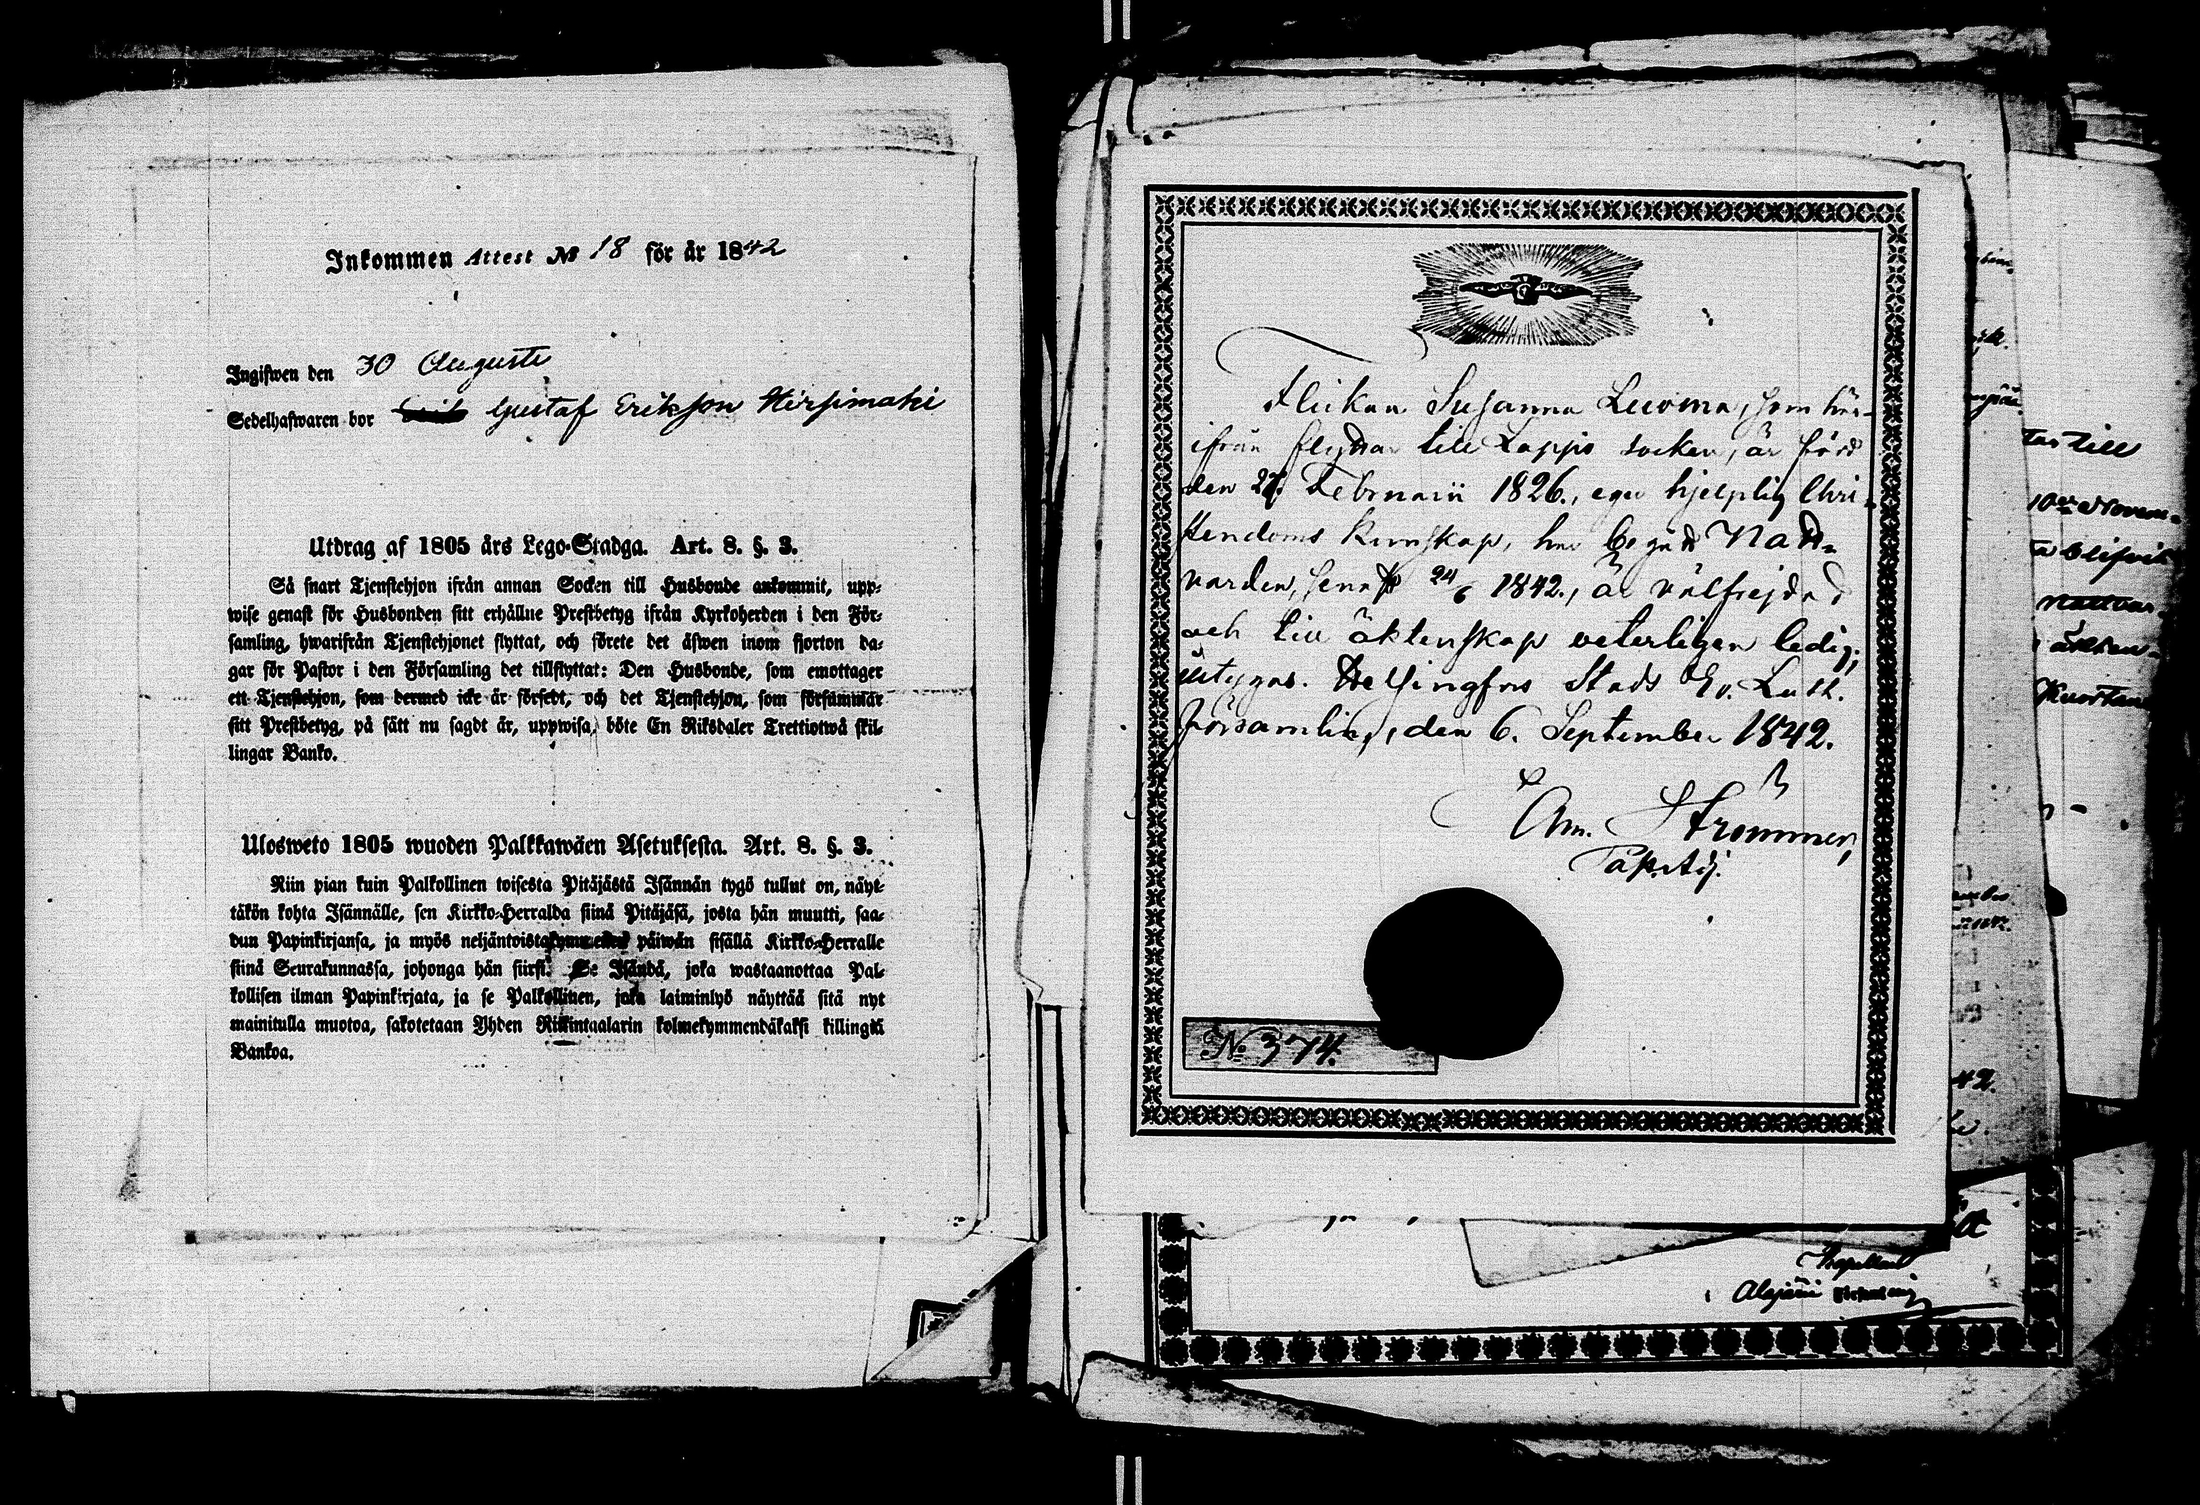 Inkommen Attest № 18 för år 1842
Ingifwen den 30 Augusti
Sedelhafwaren bor Gustaf Erikson Hirsimäki
Utdrag af 1805 års Lego-Stadga. Art. 8. §. 3.
Så snart Tjenstehjon ifrån annan Socken till Husbonde ankommit, upp-
wise genast för Husbonden sitt erhållne Prestbetyg ifrån Kyrkoherden i den För-
samling, hwarifrån Tjenstehjonet flyttat, och förete det äfwen inom fjorton da-
gar för Pastor i den Församling det tillflyttat: Den Husbonde, som emottager
ett Tjenstehjon, som dermed icke är försedt, och det Tjenstehjon, som försummar
sitt Prestbetyg, på sätt nu sagdt är, uppwisa, böte En Riksdaler Trettiotwå skil-
lingar Banko.
Ulosweto 1805 wuoden Palkkawäen Asetuksesta. Art. 8. §. 3.
Niin pian kuin Palkollinen toisesta Pitäjästä Isännän tygö tullut on, näyt-
täkön kohta Isännälle, sen Kirkko-Herralda siinä Pitäjäsä, josta hän muutti, saa-
dun Papinkirjansa, ja myös neljäntoistakymmenen päiwän sisällä Kirkko-Herralle
siinä Seurakunnassa, johonga hän siirsi. Se Isändä, joka wastaanottaa Pal-
kollisen ilman Papinkirjata, ja se Palkollinen, joka laiminlyö näyttää sitä nyt
mainitulla muotoa, sakotetaan Yhden Riikintaalarin kolmekymmendäkaksi killingiä
Bankoa.
Flickan Susanna Luoma, som här-
ifrån flyttar till Lappo socken, är född
den 27. Februarii 1826., eger hjelplig Chri-
stendoms kunskap, har begått Natt-
varden, senast 24/6 1842., är välfrejdad
och till äktenskap veterligen ledig;
intygas. Helsingfors Stads Ev. Luth.
Församling, den 6. September 1842.
Am. Strömmer,
Past. Adj.
№ 374.
Kapellant
Alajärvi
tas till
Nattvar-
Kuortane